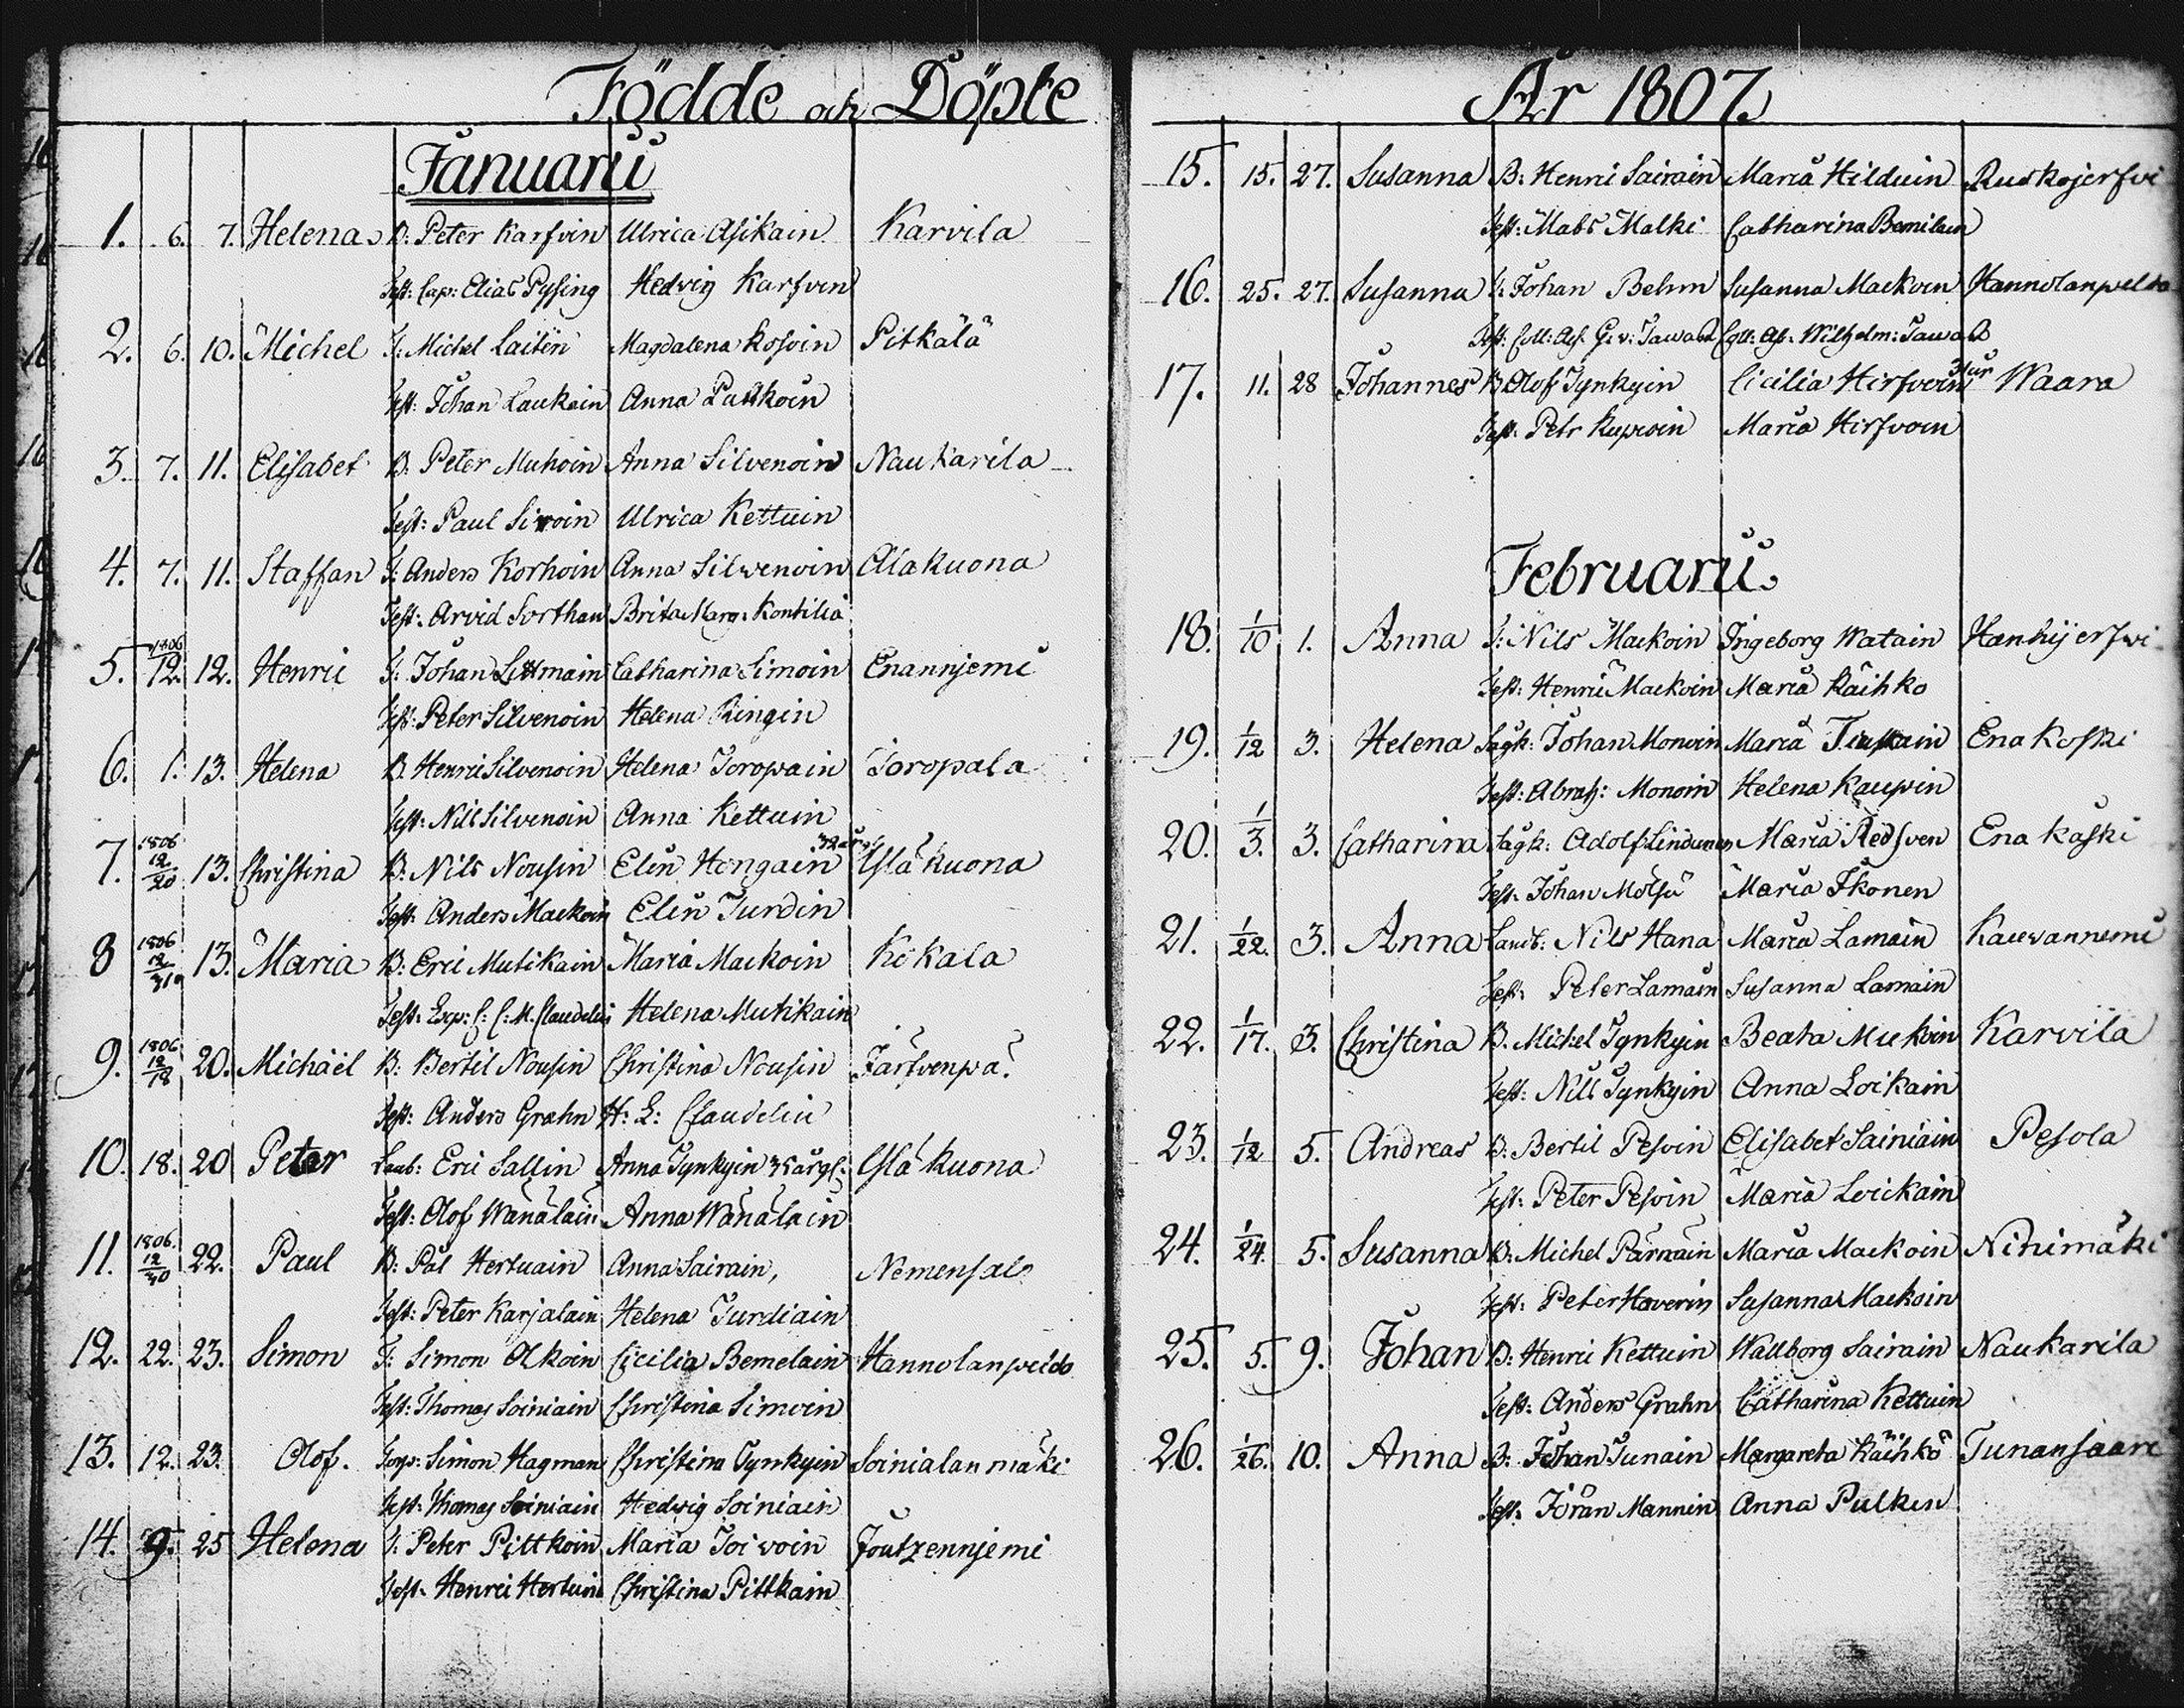 Födde och Döpte
Januarii
1. 6. 7. Helena B: Peter Karfvin Ulrica Asikain Karvila
Test: Cap: Elias Pysing Hedvig Karfven
2. 6. 10. Michel T: Michel Laitin Magdalena Kosoin Pitkälä
Test: Johan Laukain Anna
3. 7. 11. Elisabet B. Peter Muhoin Anna Silvenoin Naukarila
Test: Paul Sivoin Ulrica Kettuin
4. 7. 11. Staffan T: Anders Korhoin Anna Silvenoin Alakuona
Test: Arvid Sorthan Brita Marg: Kontilia
5. 1806 12. 12. Henric T: Johan Catharina Simoin Enannjemi
Test: Peter Silvenoin Helena Ringin
6. 1. 13. Helena B. Henric Silvenoin Helena Toropain Toropala
Test: Nils Silvenoin Anna Kettuin
7. 1806 12/20 13. Christina B: Nils Nousin Elin Hongain Yläkuona
Test: Anders Maekoin Elin Turdin
8 1806 12/31. 13. Maria B: Eric Mutikain Maria Maekoin Kokala
Test: Exp: C: C: M. Claudelin Helena Mutikain
9. 1806 12/18 20. Michaël B: Bertil Nousin Christina Nousin Järfvenpä
Test: Anders Grahn H: L: Claudelin
10. 18. 20 Peter Landb: Eric Sallin Anna Tynkyin 35 år gl. Ylä kuona
Test: Olof Wänäläin Anna Wänäläin
11. 1806. 12/30 22. Paul B: Pål Hertuain Anna Sairain, Nemensalo
Test: Peter Karjalain Helena Turdiain
12. 22. 23. Simon T: Simon Olkoin Cicilia Bemelain Hannolanpeldo
Test: Thomas Soiniain Christina Simoin
13. 12. 23. Olof. Torp: Simon Hagman Christina Tynkyin Soinialanmäki
Test: Thomas Soiniain Hedvig Soiniain
14. 9. 25 Helena T: Peter Pittkoin Maria Toivoin Joutzennjemi
Test: Henric Hertuin Christina Pittkain
År 1807.
15. 15. 27. Susanna B: Henric Sairain Maria Hilduin Ruskojerfvi
Test: Mats Malki Catharina Bemilain
16. 25. 27. Susanna T: Johan Behm Susanna Maekoin Hannolanpeldo
Test: Coll: Ass. G: v: Tawast Coll: Ass. Wilhelm: Tawast
17. 11. 28 Johannes B Olof Tynkyin Cicilia Hirfvoin Waara
Test: Petr Kupoin Maria Hirfvoin
Februarii
18. 1/10 1. Anna T: Nils Maekoin Ingeborg Watain Hankijerfvi
Test: Henric Maekoin Maria Räihko
19. 1/12 3. Helena Sågk: Johan Monoin Maria Tiuskain Enakoski
Test: Abrah: Monoin Helena Kaupin
20. 1/3. 3. Catharina Sågk: Adolf Lindunen Maria Redsven Enakoski
Test: Johan Mölsä Maria Ikonen
21. 1/22. 3. Anna Landb: Nils Hana Maria Lamain Kaewannemi
Test: Peter Lamain Susanna Lamain
22. 1/17. 3. Christina B. Michel Tynkyin Beata Muekoin Karvila
Test: Nils Tynkyin Anna Loikain
23. 1/12 5. Andreas B: Bertil Pesoin Elisabet Sainiain Pesola
Test: Peter Pesoin Maria Loickain
24. 1/24. 5. Susanna B: Michel Pärnäin Maria Maekoin Niinimäki
Test: Peter Haverin Susanna Maekoin
25. 5. 9. Johan B: Henric Kettuin Wallborg Sairain Naukarila
Test: Anders Grahn Catharina Kettuin
26. 1/26. 10. Anna B: Johan Tunain Margareta Räihkö Tunansaari
Test: Jöran Mannin Anna Pulken